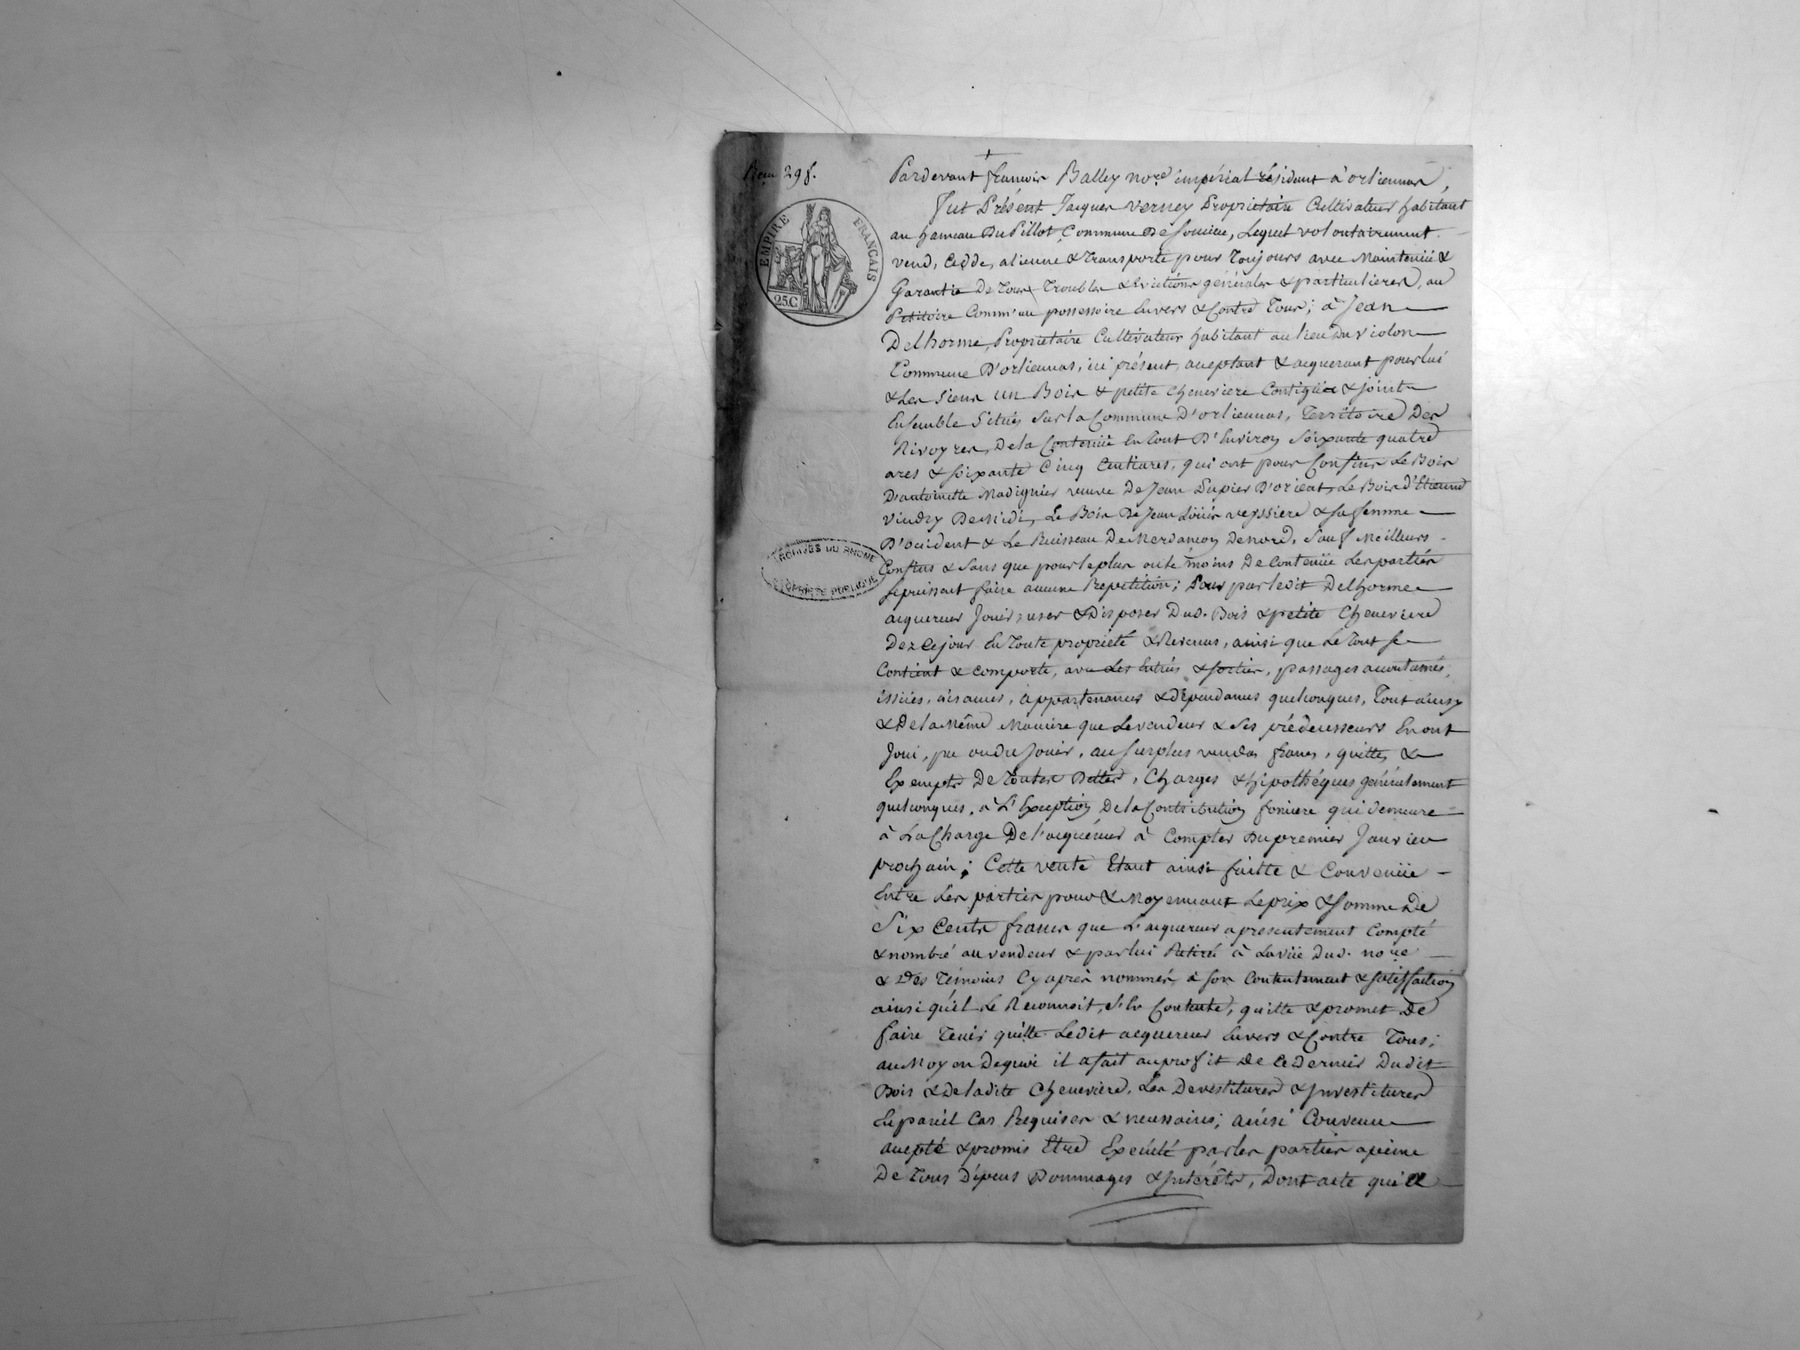 29 f.
Pardevant françois Balley no.re impérial résidant à orliennas,
fut Présent Jacques Verney Propriétaire Cultivateur habitant
au hameau Du Pillot, Commune De Soucieu, Lequel volontairement
vend, Cedde, alienne & transporte pour toujours avec Maintenüe &
Garantie De Tous Troubles & évictions générales & particulieres, au
Petitoire Comm'au possessoire Envers & Contre Tous; à Jean
Delhorme, Propriétaire Cultivateur habitant au lieu Du violon
Commune D'orliennas, ici présent, aceptant & aiquerant pour lui
& Les Siens un Bois & petite Cheneviere Contigüe & joints
Ensemble Situés Sur la Commune D'orliennas, Territoire Des
Rivoyres, De la Contenüe En tout D'Environ Soixante quatre
ares & Soixante Cinq Centiares, qui ont pour Confins Le Bois
D'antoinette Madignier veuve De Jean Dupier D'orient, Le Bois d'Etienne
Vindry De Midi, Le Bois De Jean Loüis veyssiere & Sa femme
D'occident & Le Ruisseau De Merdançon De nord, Sauf Meilleurs
Confins & Sans que pour le plus ou le moins De Contenüe Les parties
Se puissent faire aucune Répetition; Pour par ledit Delhorme
aiquereur Joüir user & Disposer Dud. Bois & petite Cheneviere
Dez ce jour En toute propriété & Revenus, ainsi que Le Tout Se
Contient & comporte, avec Les Entrées & Sorties, passages acoutumés,
issües, aisances, appartenances & dépendances quelconques, Tout ainsy
& De la Même Maniere que Le vendeur & Ses prédecesseurs En ont
Joüi, pu ou du Joüir, au Surplus vendus francs, quittes &
Exempts De toutes Dettes, Charges & hipothéques généralement
quelconques, à L'Exception De la Contribution fonciere qui demeure
à La Charge De l'aiquéreur à Compter Du premier Janvier
prochain; Cette vente Etant ainsi faitte & Convenüe
Entre Les parties pour & Moyennant Le prix & Somme De
Six Cents francs que L'aiquereur a présentement Compté
& nombré au vendeur & par lui Retiré à La vüe Dud. no.re
& Des Témoins Cy après nommés, à Son Contentement & Satisfaction
ainsi qu'il Le Reconnoit, S'En Contente, quitte & promet De
faire Tenir quitte Ledit aiquereur Envers & Contre Tous;
au Moyen De quoi il a fait au profit De Ce Dernier Dudit
Bois & De ladite Cheneviere, Les Devestitures & Investitures
En pareil Cas Requises & necessaires; ainsi Convenu
acepté & promis Etre Exécuté par les parties a peine
De Tous Dépens Dommages & Intérêts, Dont acte qu'elle
EMPIRE FRANÇAIS
25C
ARCHIVES DU RHONE
PROPRIÉTÉ PUBLIQUE